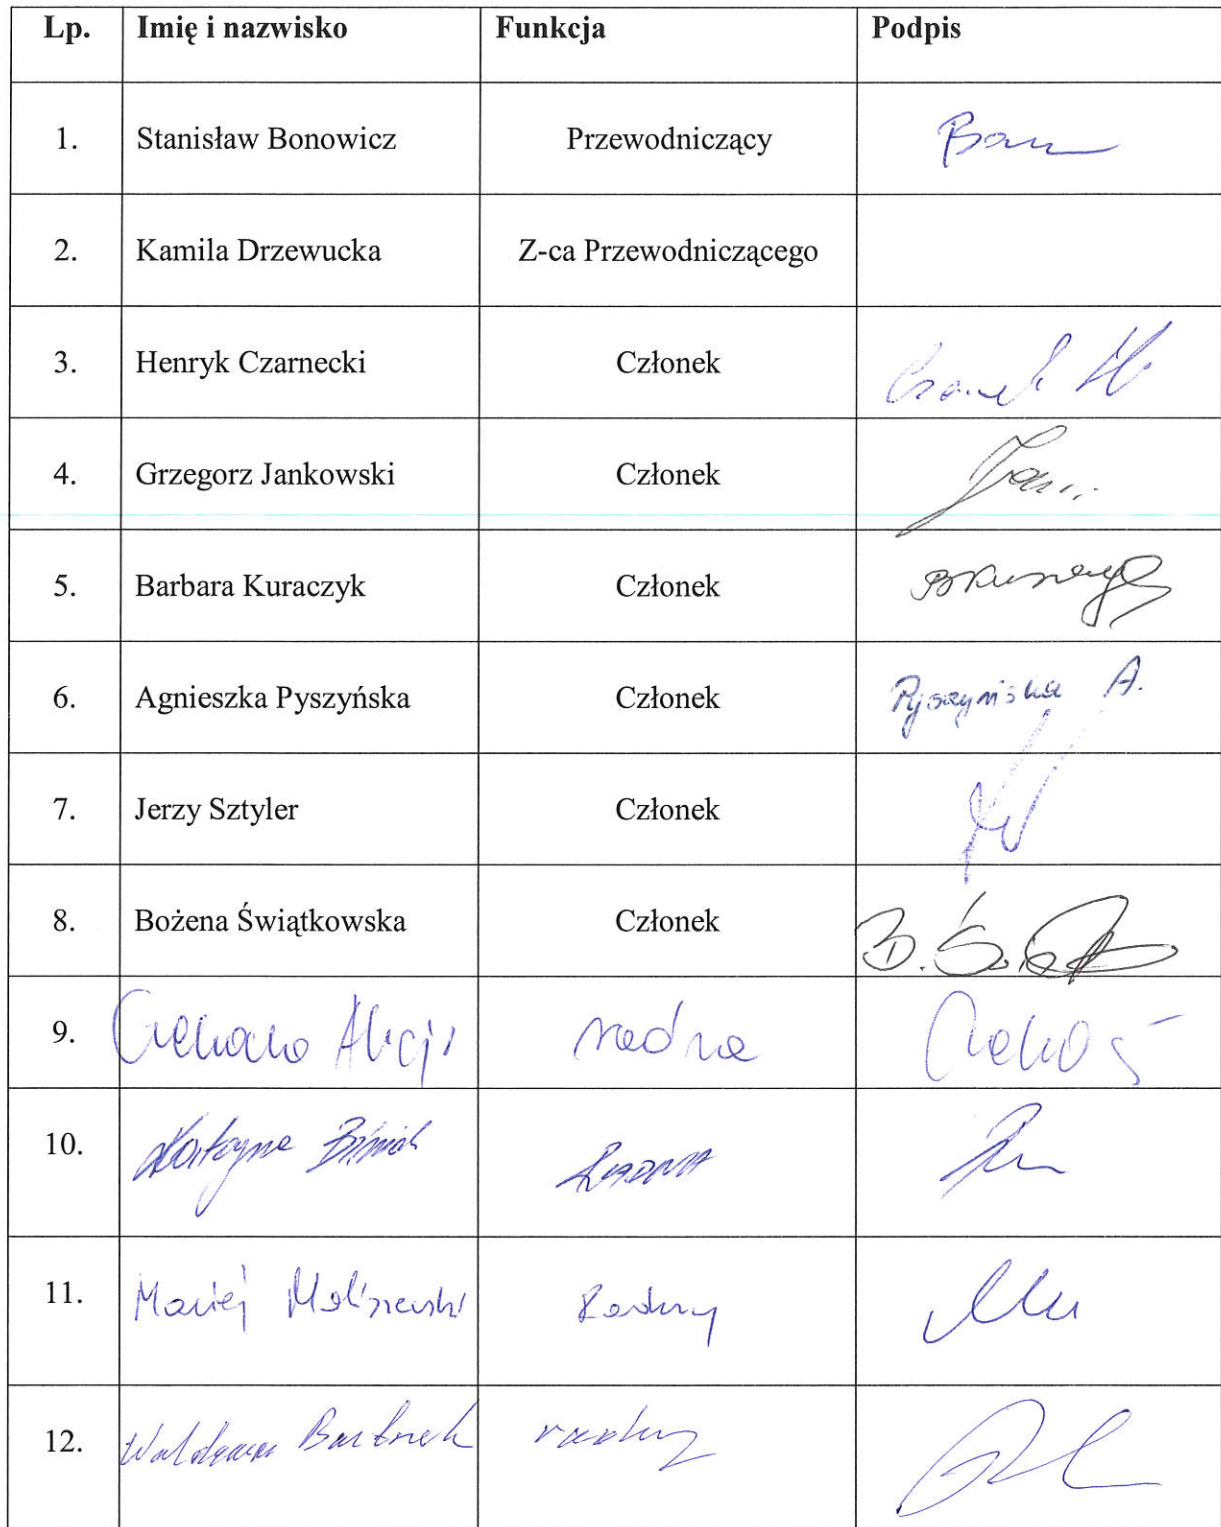 Lp. Imię i nazwisko Funkcja Podpis
1. Stanisław Bonowicz Przewodniczący
2. Kamila Drzewucka Z-ca Przewodniczącego
3. Henryk Czarnecki Członek
4. Grzegorz Jankowski Członek
5. Barbara Kuraczyk Członek
6. Agnieszka Pyszyńska Członek Pyszyńska A.
7. Jerzy Sztyler Członek
8. Bożena Świątkowska Członek
9. Alicja radna
10. Katarzyna RADNA
11. Maciej Maliszewski Radny
12. Waldemar radny